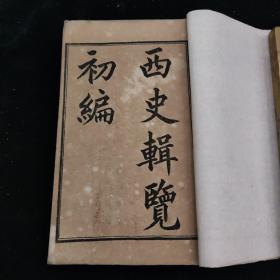 西史輯覽
初編